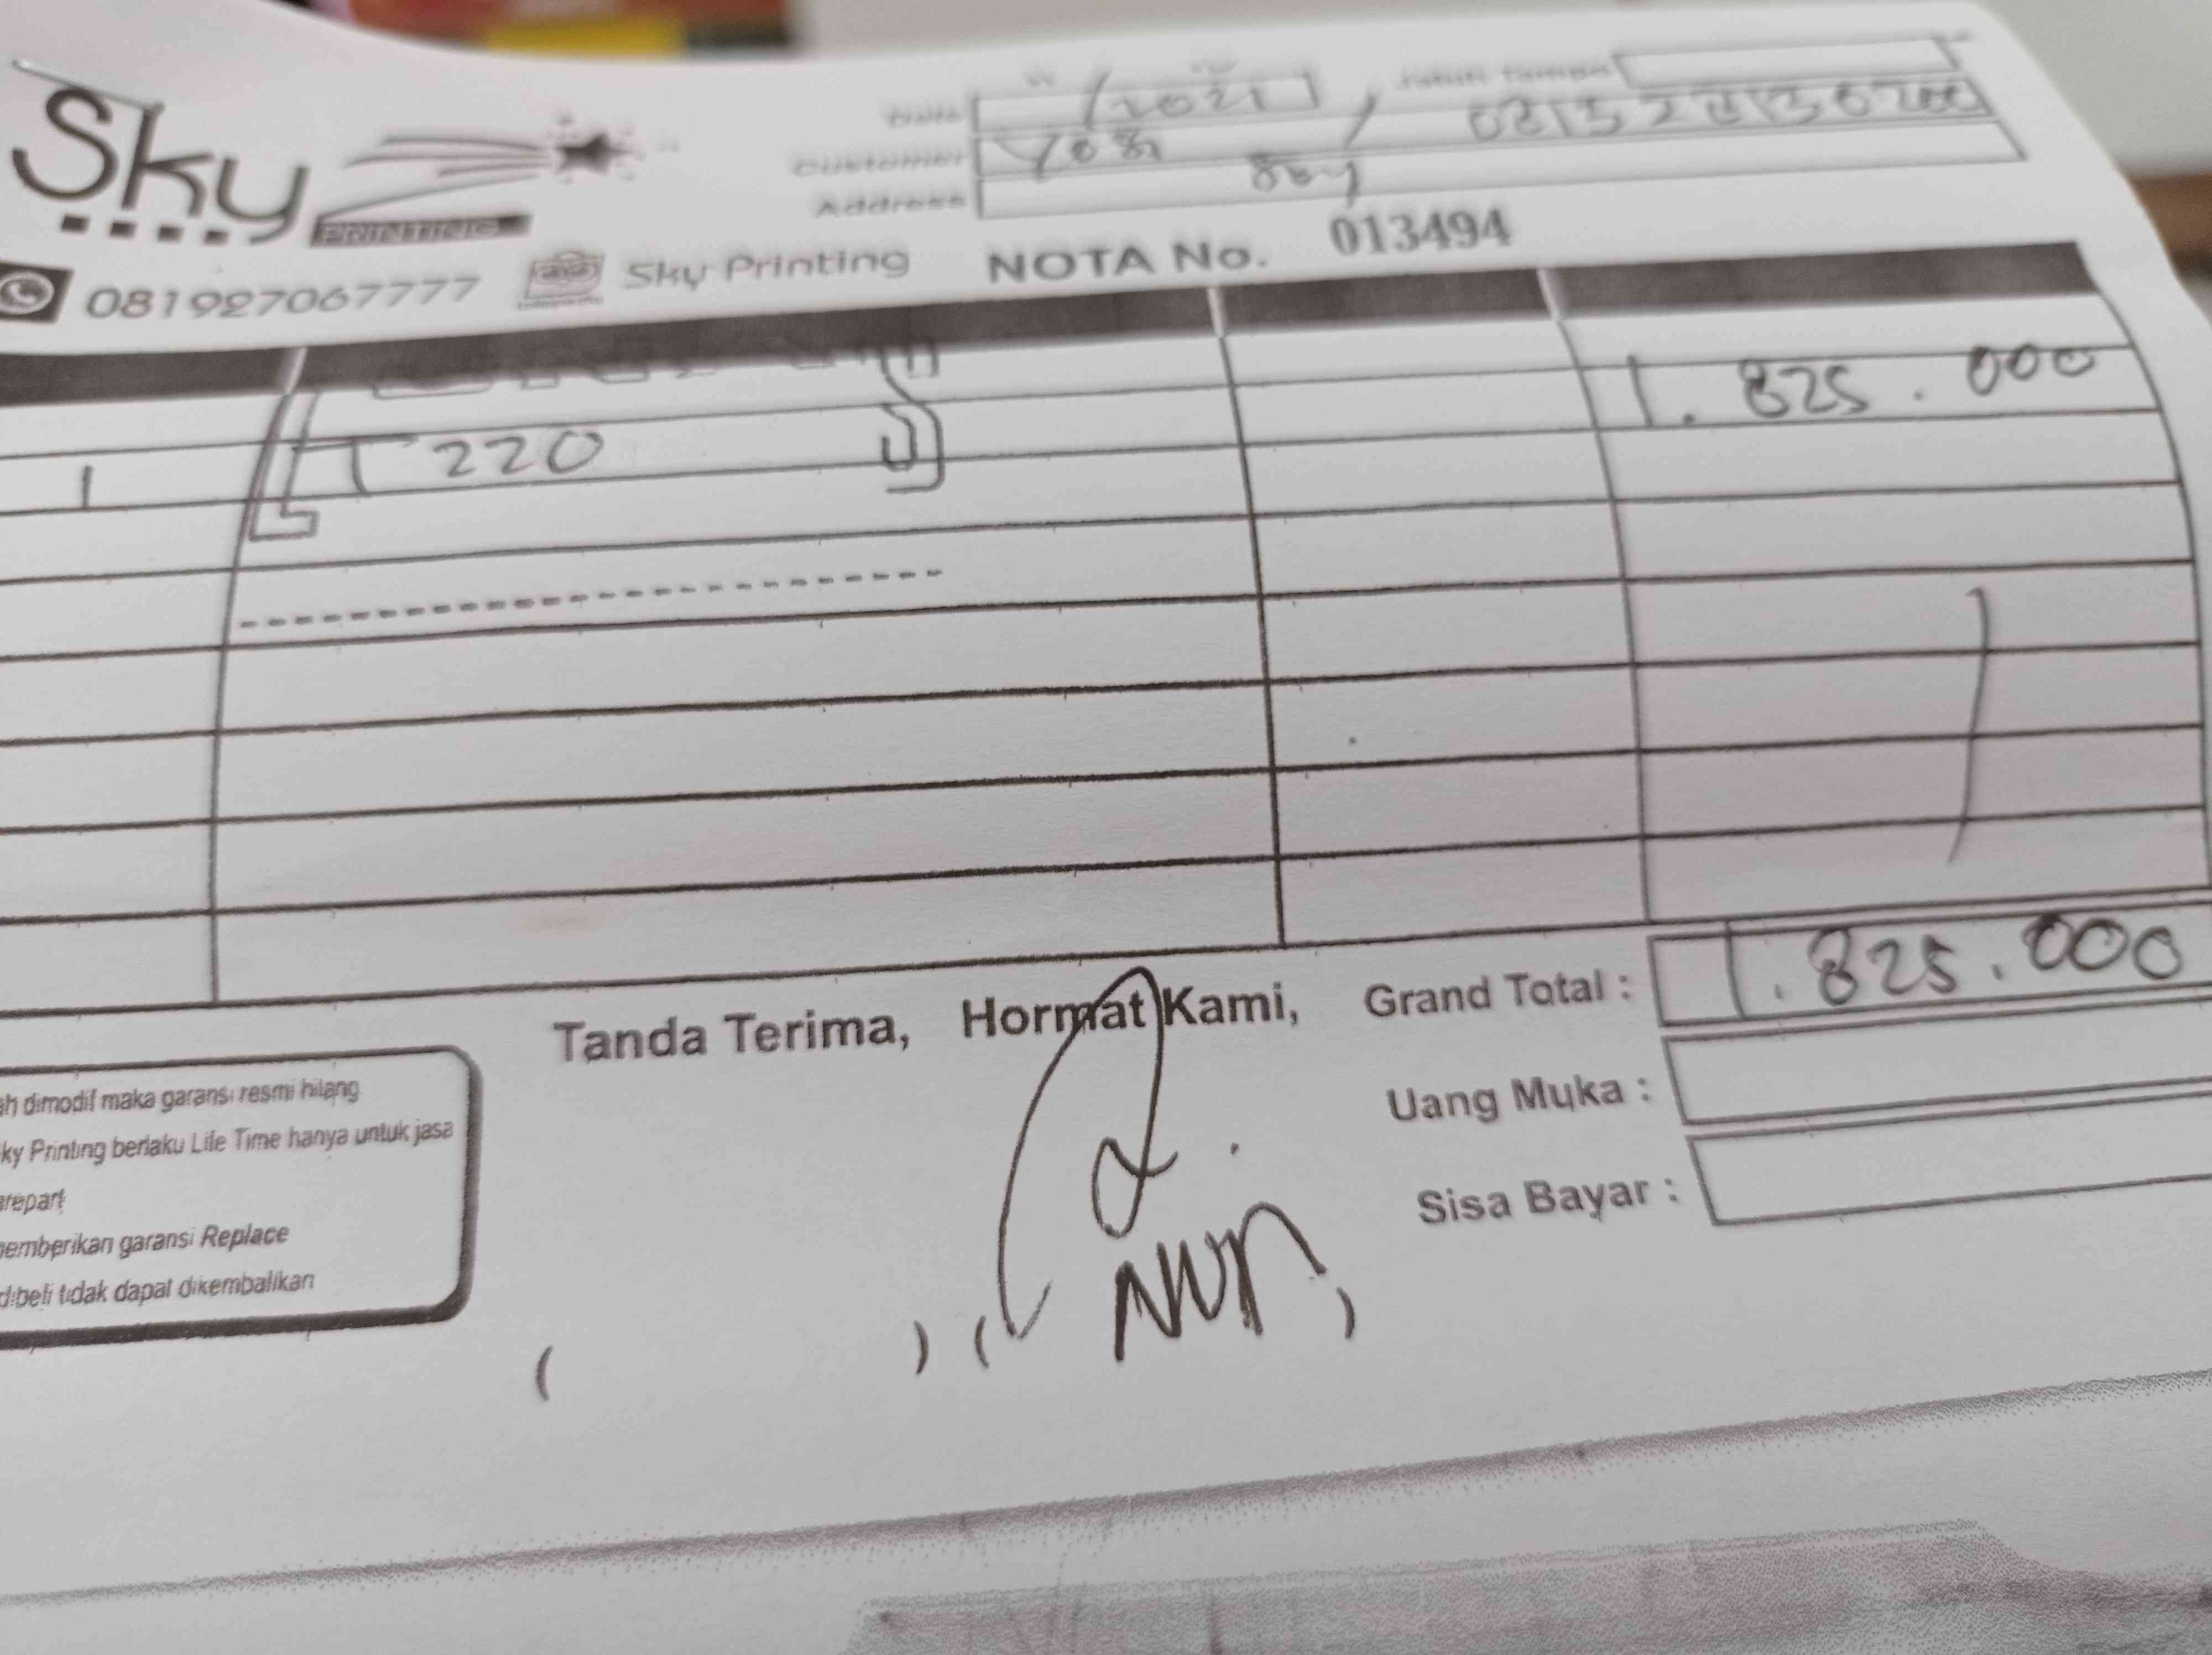 Sky
PRINTING
Date /2021
Customer Yosi /
Address Sby
081927067777 Sky Printing NOTA No. 013494
1 T 220 1.825.000
Tanda Terima, Hormat Kami, Grand Total : 1.825.000
Uang Muka :
Sisa Bayar :
ah dimodif maka garansi resmi hilang
ky Printing berlaku Life Time hanya untuk jasa
arepart
emberikan garansi Replace
dibeli tidak dapat dikembalikan
( ) ( Nur )